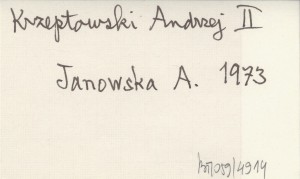 Krzeptowski Andrzej II
Janowska A. 1973